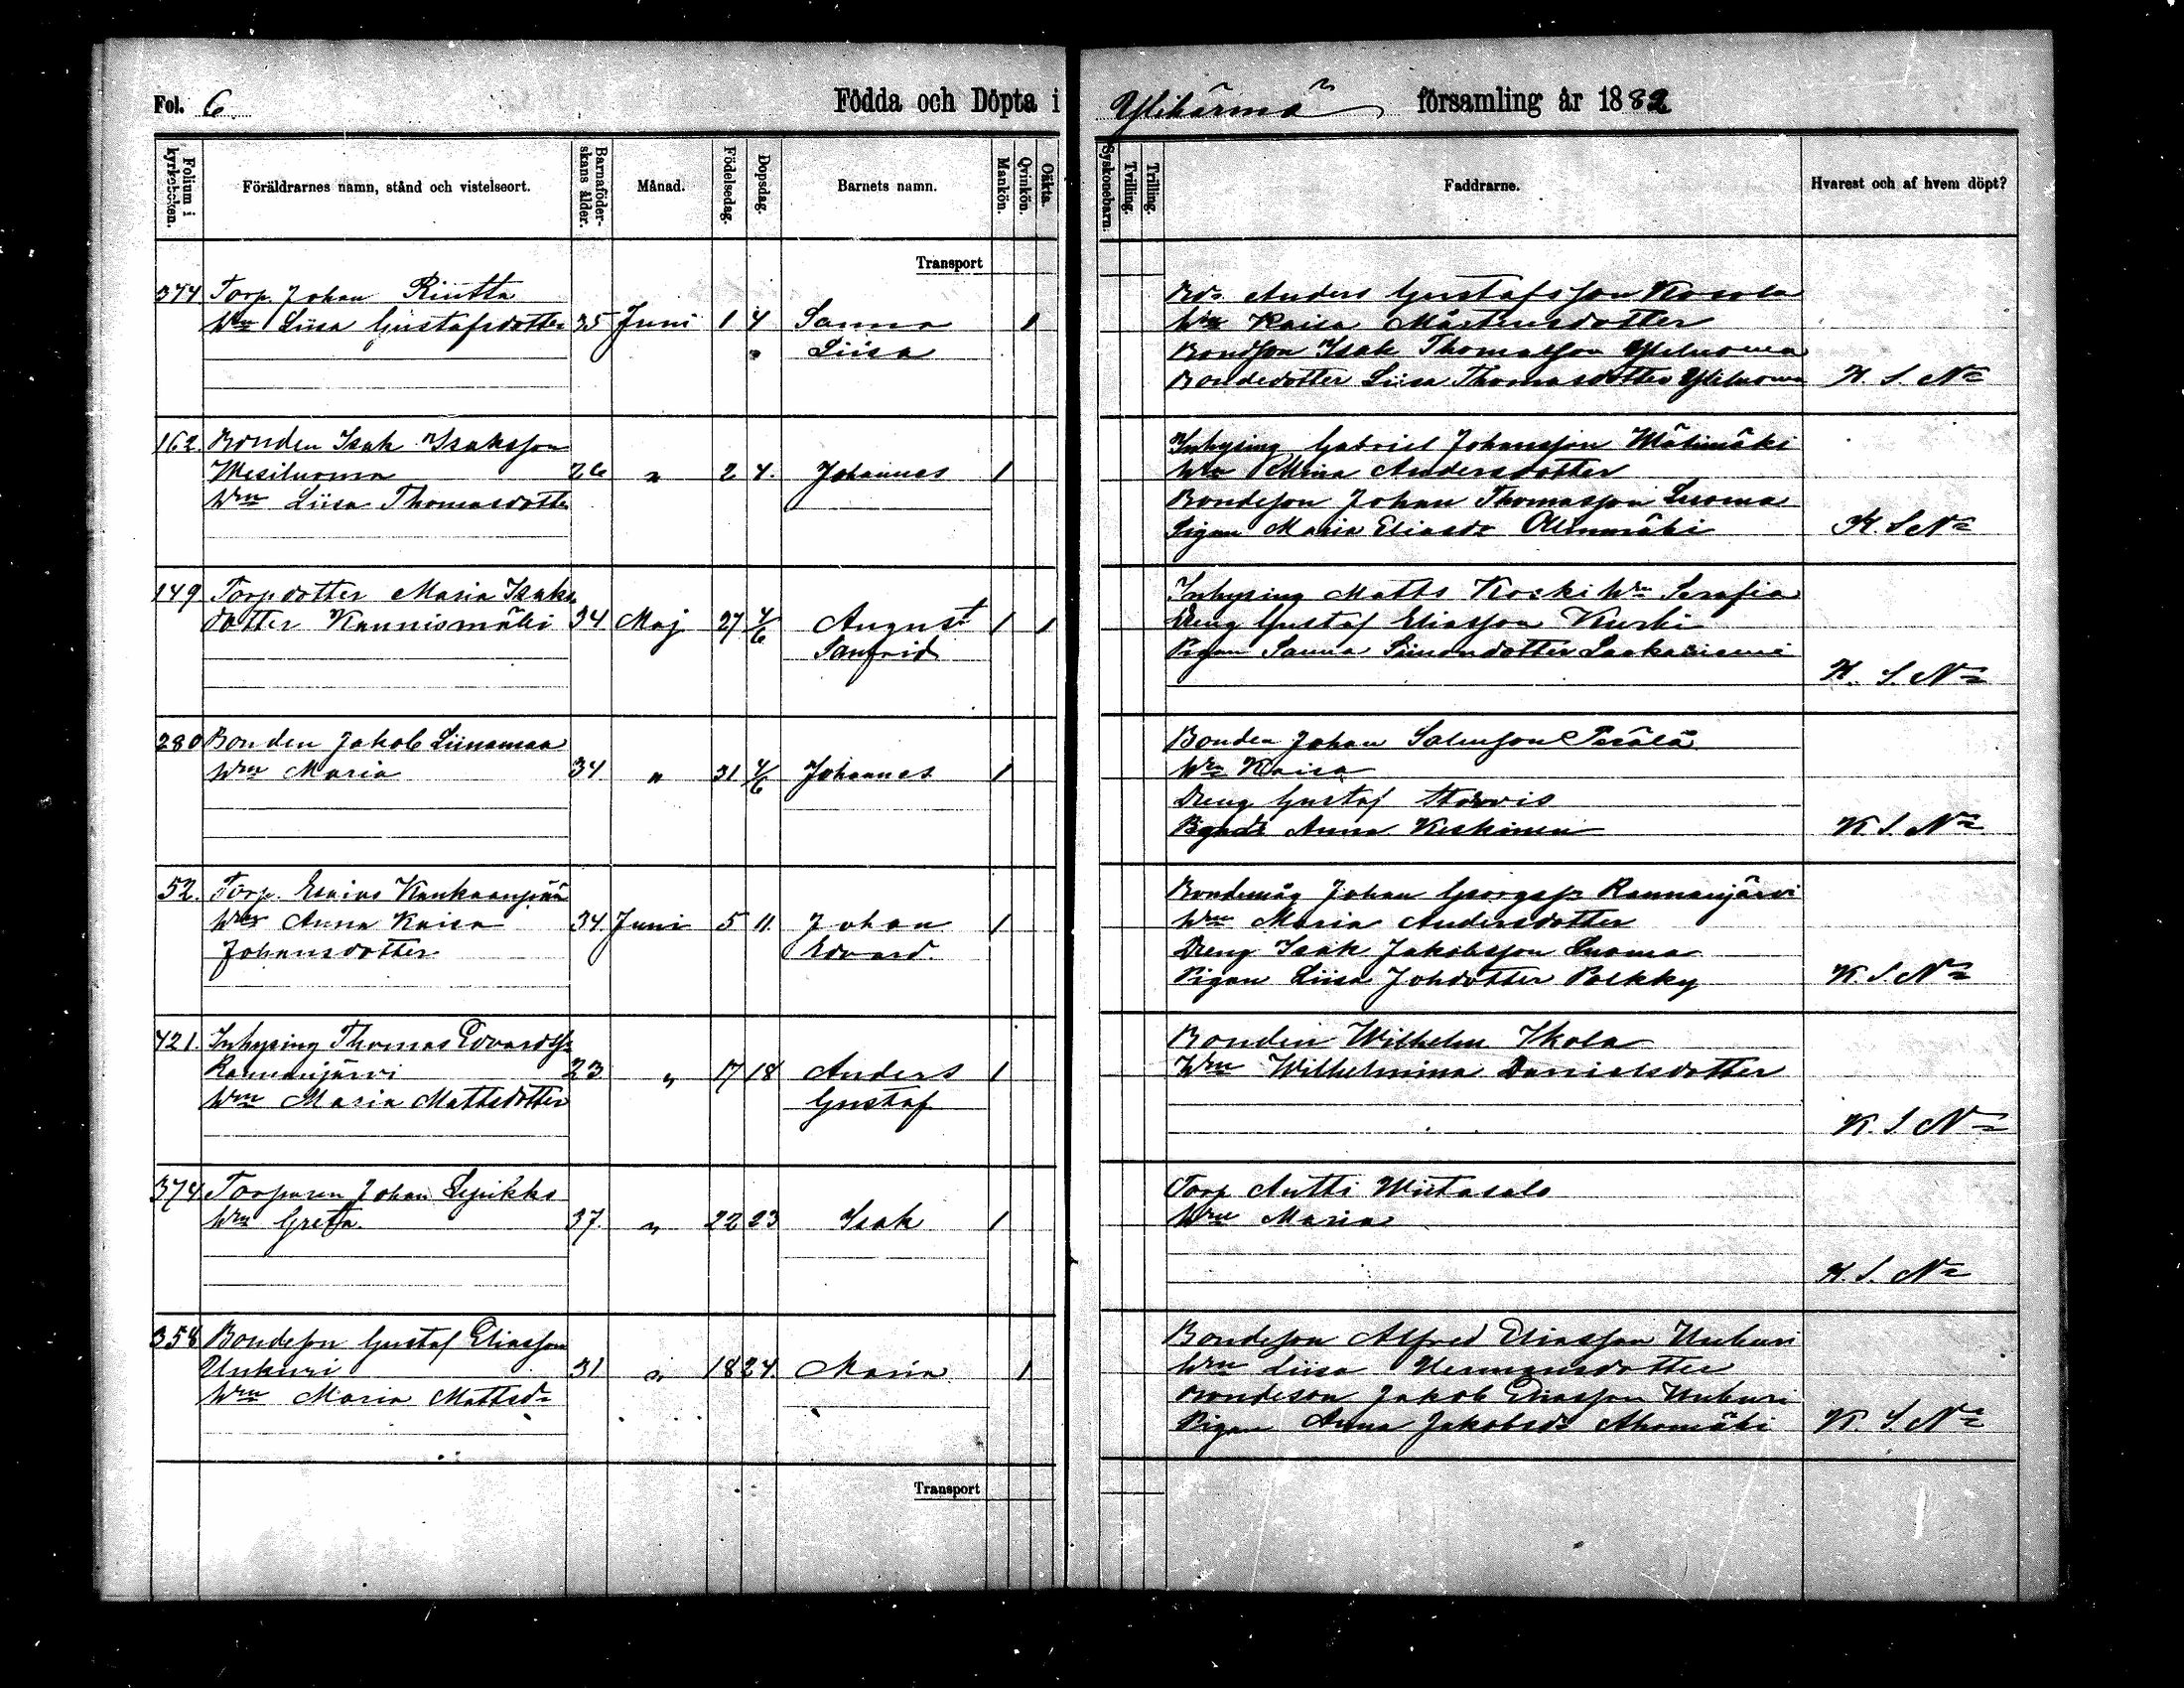 Fol. 6 Födda och Döpta i Ylikärmä församling år 1882
Folium i kyrkoboken. Föräldrarnes namn, stånd och vistelseort. Barnaföderskans ålder. Månad. Födelsedag. Dopsdag. Barnets namn. Mankön. Qvinkön. Oäkta. Syskonebarn. Tvilling. Trilling. Faddrarne. Hvarest och af hvem döpt?
Transport
374 Torp. Johan Riutta
Hru Liisa Gustafsdotter 35 Juni 1 4 Sanna 1
" Liisa
Bds. Anders Gustafsson Kosola
Hru Kaisa Mårtensdotter
Bondson Isak Thomasson Yliluoma
Bondedotter Liisa Thomasdotter Yliluoma K. S. N
162. Bonden Isak Isaksson
Wesiluoma 26 " 2 4. Johannes 1
Hru Liisa Thomasdotte
Inhysing Gabriel Johansson Mäkimäki
Hru Miina Andersdotter
Bondeson Johan Thomasson Luoma
Pigan Maria Eliasd: K. S. N
149. Torpdotter Maria Isaks
dotter Kaunismäki 34 Maj 27 4/6 August 1 1
Sanfrid
Inhysing Matts Koski Hru Serafia
Dreng Gustaf Eliasson Kurki
Pigan Sanna Simondotter
K. S. N
280 Bonden Jakob Liinamaa
Hru Maria 34 " 31 4/6 Johannes 1
Bonden Johan Salusson Perälä
Hru Kaisa
Dreng Gustaf
Anna Keskinen K. S. N
52. Torp. Esaias Kankaanpää
Hru Anna Kaisa 34 Juni 5 11. Johan 1
Johansdotter Edvard
Bondemåg Johan Georgss: Rannanjärvi
Hru Maria Andersdotter
Dreng Isak Jakobsson Luoma
Pigan Liisa Johdotter Polkky K. S. N
421. Inhysing Thomas Edvardss:
Rannanjärvi 23 " 17 18 Anders 1
Hru Maria Mattsdotter Gustaf
Bonden Wilhelm Ikola
Hru Wilhelmina Danielsdotter
K. S. N
374 Torparen Johan Lepikko
Hru Greta 37. " 22 23 Isak 1
Torp Antti Wiitasalo
Hru Maria
K. S. N
358 Bondeson Gustaf Eliasson
Unkuri 31 " 18 24. Maria 1
Hru Maria Mattsd:
Bondeson Alfred Eliasson Unkuri
Hru Liisa Hermansdotter
Bondeson Jakob Eliasson Unkuri
Pigan Anna Jakobsd: Ahomäki K. S. N
Transport